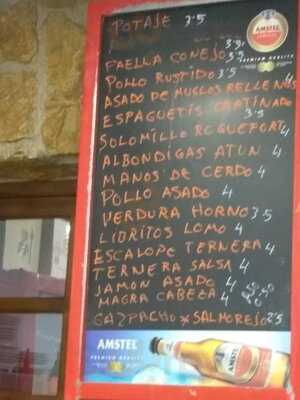 POTAJE 3'5
3'5
PAELLA CONEJO 3'5
POLLO RUSTIDO 3'5
ASADO DE MUSLOS RELLENOS
4
ESPAGUETIS GRATINADO
3'5
SOLOMILLO ROQUEFORT 4
ALBONDIGAS ATUN 4
MANOS DE CERDO 4
POLLO ASADO 4
VERDURA HORNO 3'5
LIBRITOS LOMO 4
ESCALOPE TERNERA 4
TERNERA SALSA 4
JAMON ASADO 4
MAGRA CABEZA 4
GAZPACHO Y SALMOREJO 2'5
AMSTEL
PREMIUM QUALITY
AMSTEL
PREMIUM QUALITY
AMSTEL